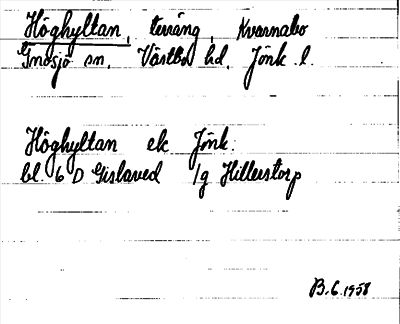 Höghyltan, terräng, Kvarnabo
Gnosjö sn, Västbo hd, Jönk. l.
Höghyltan ek Jönk.
bl. 6 D Gislaved 1g Hillerstorp
B.G. 1958